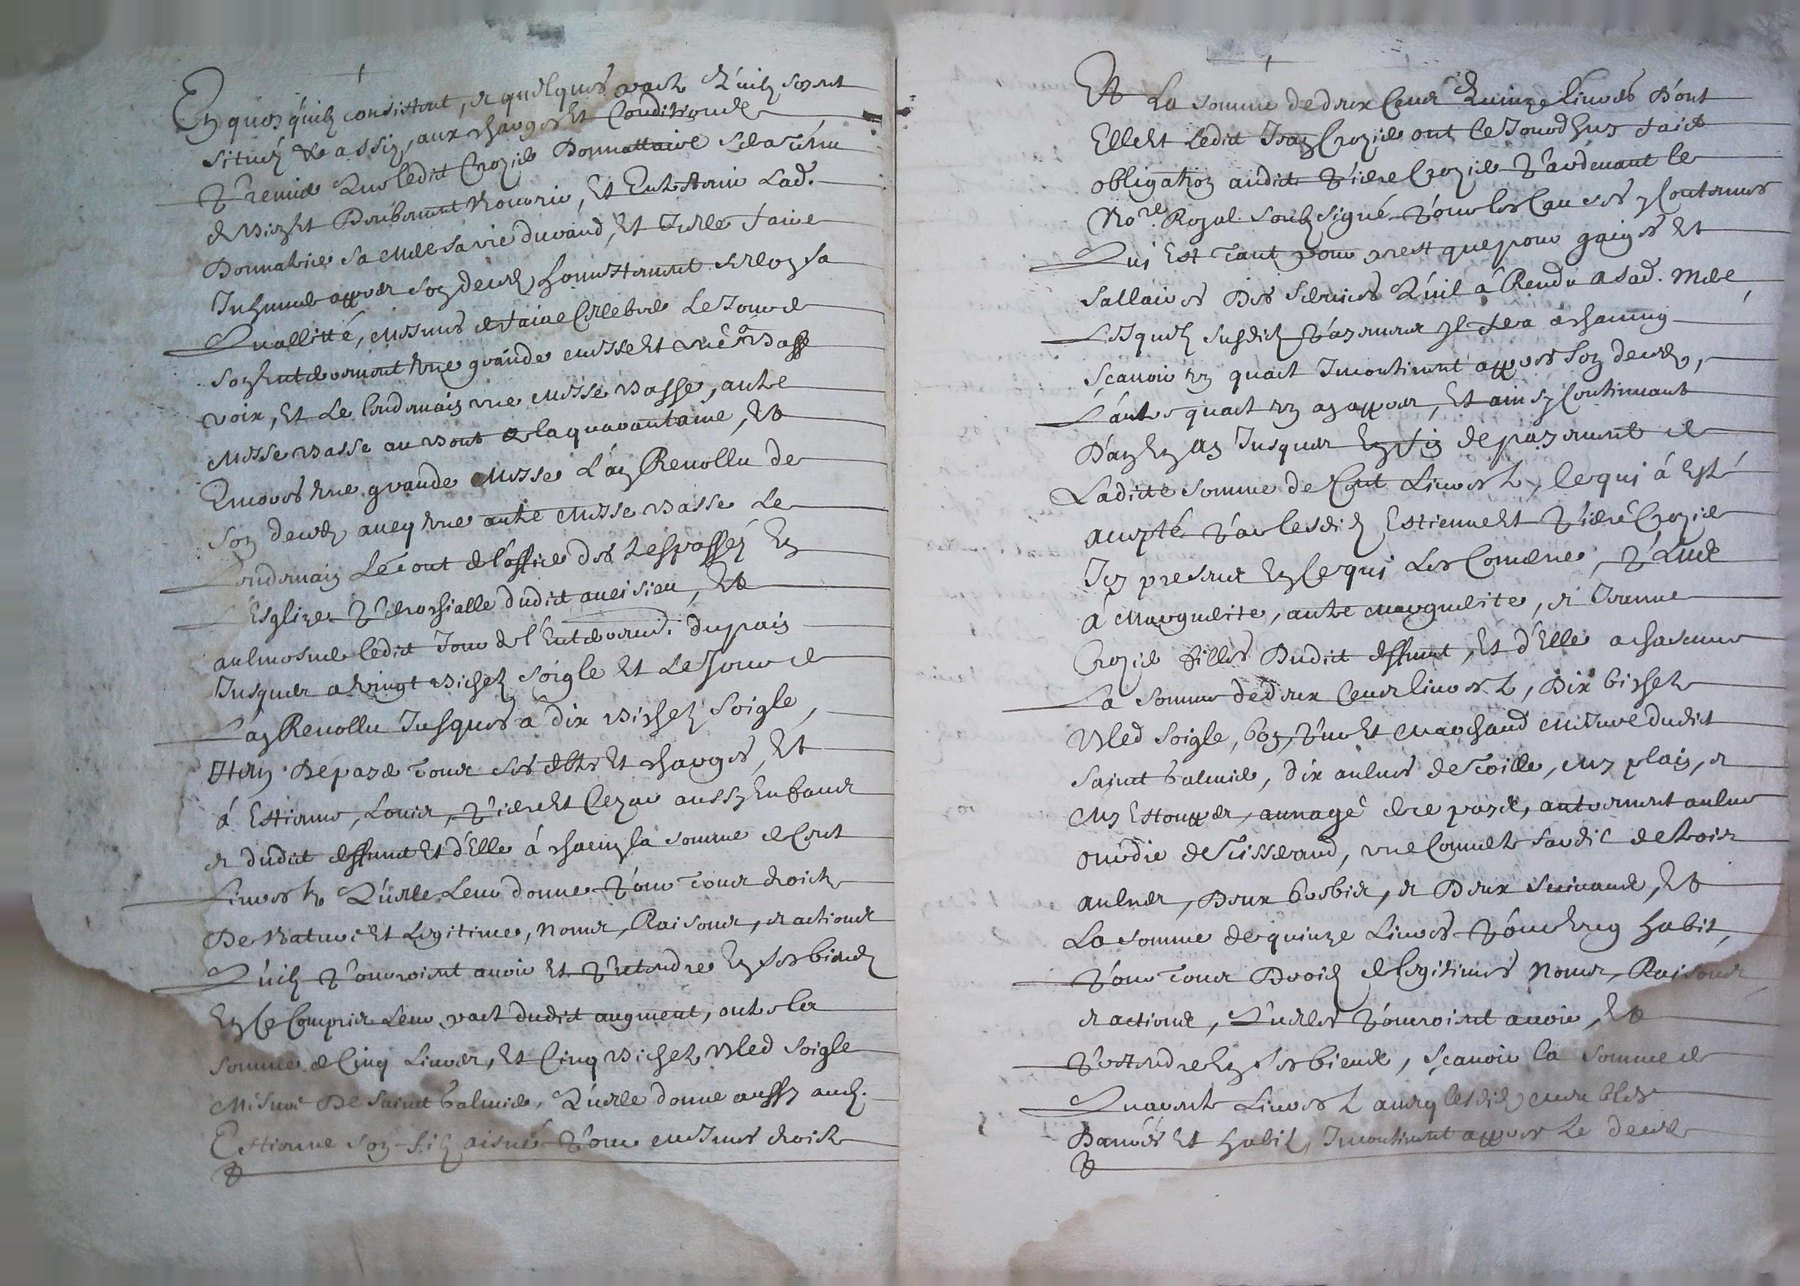 En quoy quilz consistent, et quelques part Quilz soient
situez & assis, aux charges Et Conditions de
Premier Que ledit Crozie Donnattaire sera tenu
de Bien Et Deubement Nourrir, Et Entretenir Lad.
Donnatrice sa mere sa vie durand, Et Icelle faire
Inhumer appres son deces honnestement selon sa
Quallitté, mesmes de faire Cellebrer Le Jour de
son Enterrement Une grande messe Et une a Basse
voix, Et Le lendemain une messe basse, autre
messe basse au bout de la quarantaine, Et
Encores Une grande messe L'an Revollu de
son deces avec Une autre messe basse Le
Lendemain Le tout de l'office des trespassez En
L'Esglize Parrochialle dudict aveisieu, Et
aulmosner ledict Jour de l'Enterrement du pain
Jusques a Vingt bichetz soigle Et Le Jour de
L'an Revollu Jusques a dix bichetz soigle,
Item De payer tous ses debtes Et charges, Et
á Estienne, Louis, Pierre Et Cezar aussy Enfans
et dudict deffunct Et d'Elle á chacung la somme de Cent
Livres Qu'elle Leur donne Pour tous droictz
De Nature Et Legitime, Noms, Raisons, et actions
Quilz Pourroient avoir Et Pretendre En ses biens
En Ce Compris Leur part dudict augment, outre la
somme de Cinq Livres, Et Cinq Bichetz Bled soigle
Mesure De Saint Galmier, Quelle donne aussy aud.
Estienne son filz aisné Pour mesmes droictz
Et
Et La somme de deux Cens Quinze Livres Dont
Elle Et Ledit Jean Crozie ont Ce Jourdhuy faict
obligation audict Pierre Crozie Pardevant le
No.re Royal soubzsigné Pour les Causes y Contenues
Qui Est tant pour prest que pour gaiges Et
sallaires Des services Quil á Rendu a sad. mere,
Lesquelz susdictz payement se fera a chacung
sçavoir un quart Incontinent appres son deces,
L'autre quart un an appres, Et ainsy Continuant
D'an En an Jusques En fin de payement de
Ladicte somme de Cent Livres, ce qui á Esté
accepté Par lesdictz Estienne Et Pierre Crozie
Icy presents En Ce qui Les Concerne, Plus
á Margueritte, autre Marguerite, et Jeanne
Crozie filles Dudict deffunct, Et d'Elle a chascune
La somme de deux Cens livres, Dix bichetz
Bled soigle, bon, pur Et Marchand Mesure dudict
Saint Galmier, dix aulnes de toille, my plain, et
my Estouppes, autrement aulne
ourdie de Tisserand, une Couverte sardis de trois
aulnes, Deux, et Deux, Et
La somme de quinze Livres Pour Ung habit,
Pour tous Droictz de legitimes Noms, Raisons
et actions, Qu'elles Pourroient avoir, Et
Pretendre En ses biens, sçavoir la somme de
Quarente Livres avec lesdictz meubles
Danrées Et habitz, Incontinent appres le deces
Et